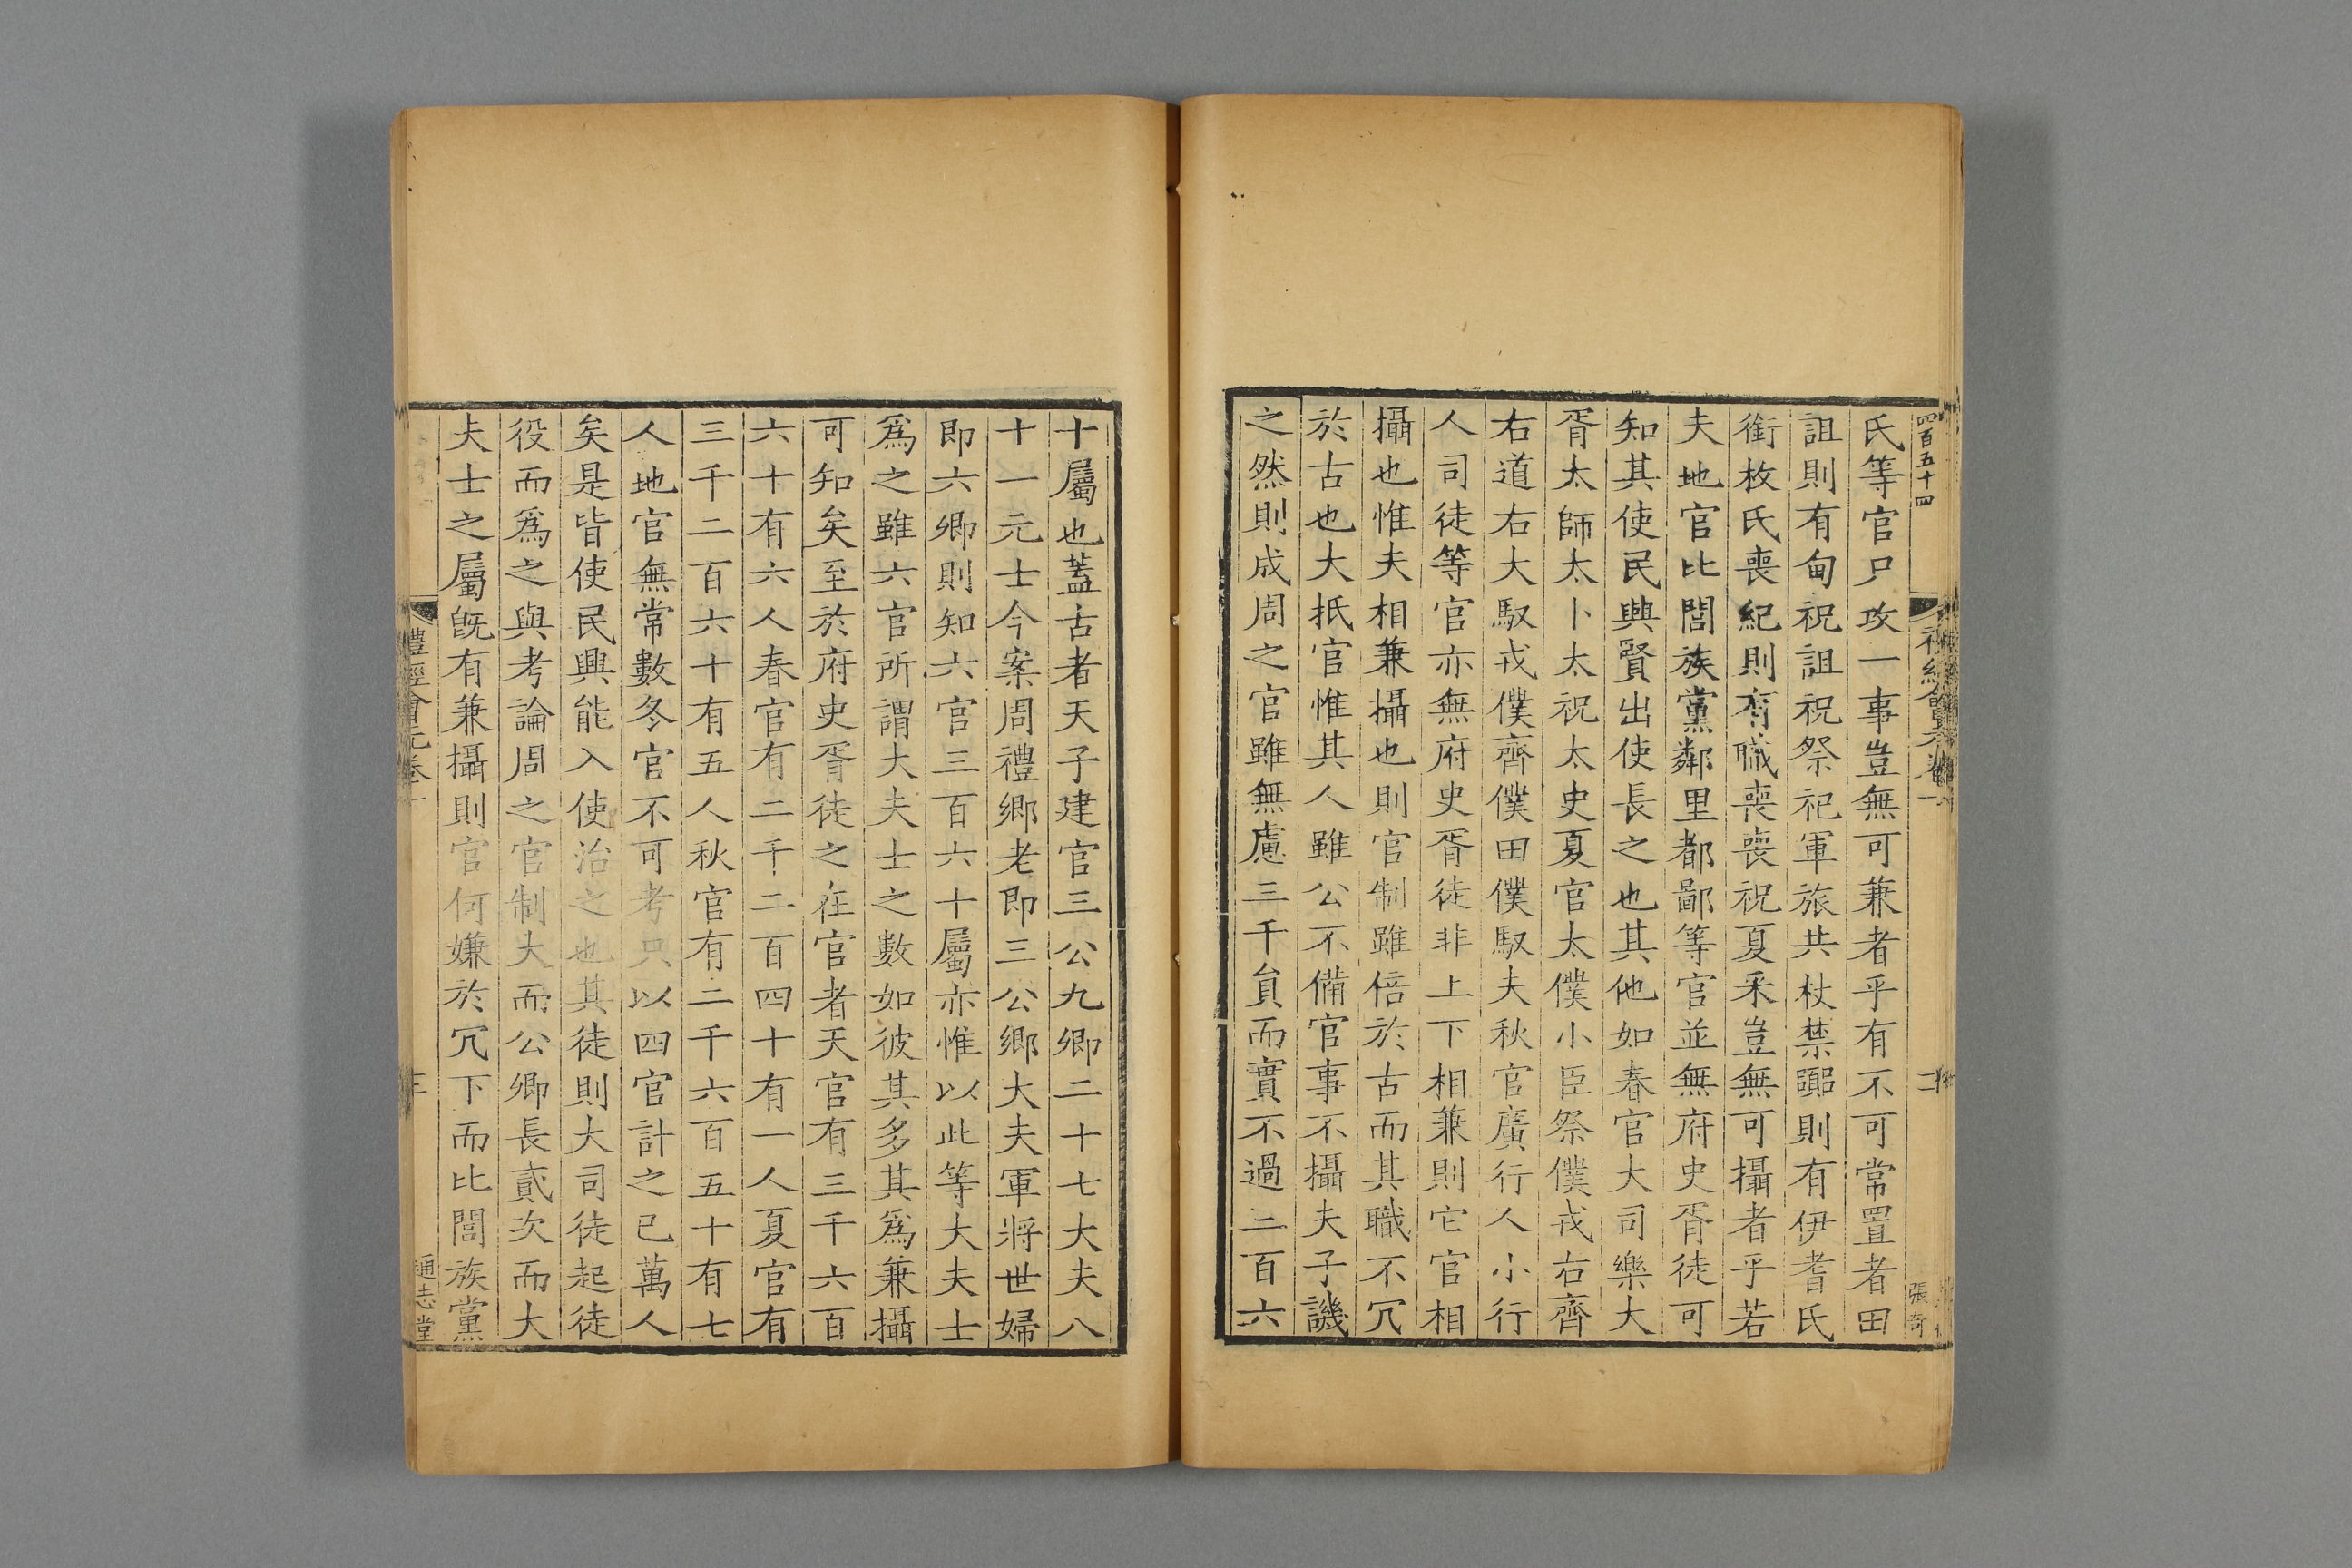 四百五十四
張奇
氏等官只攻一事豈無可兼者乎有不可常置者田
詛則有甸祝詛祝祭祀軍旅共杖禁嚻則有伊耆氏
銜枚氏喪紀則有職喪喪祝夏采豈無可攝者乎若
夫地官比閭族黨鄰里都鄙等官並無府史胥徒可
知其使民興賢出使長之也其他如春官大司樂大
胥太師太卜太祝太史夏官太僕小臣祭僕戎右齊
右道右大馭戎僕齊僕田僕馭夫秋官廣行人小行
人司徒等官亦無府史胥徒非上下相兼則它官相
攝也惟夫相兼攝也則官制雖倍於古而其職不冗
於古也大抵官惟其人雖公不備官事不攝夫子譏
之然則成周之官雖無慮三千貟而實不過三百六
十屬也蓋古者天子建官三公九卿二十七大夫八
十一元士今案周禮鄉老即三公鄉大夫軍將世婦
即六卿則知六官三百六十屬亦惟以此等大夫士
爲之雖六官所謂大夫士之數如彼其多其爲兼攝
可知矣至於府史胥徒之在官者天官有三千六百
六十有六人春官有二千二百四十有一人夏官有
三千二百六十有五人秋官有二千六百五十有七
人地官無常數冬官不可考只以四官計之已萬人
矣是皆使民興能入使治之也其徒則大司徒起徒
役而爲之與考論周之官制大而公卿長貳次而大
夫士之屬旣有兼攝則官何嫌於冗下而比閭族黨
禮經會元卷一
三
通志堂